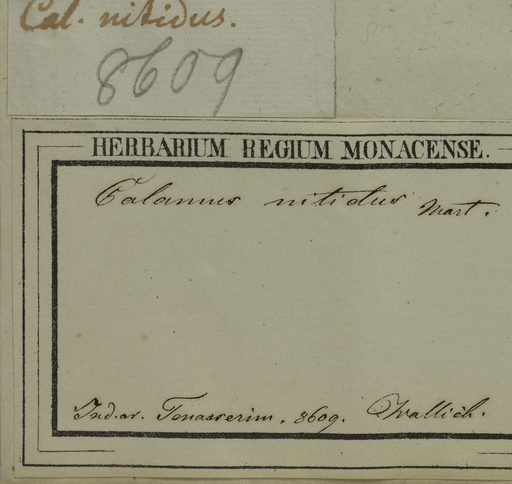 Cal. nitidus.
8609
HERBARIUM REGIUM MONACENSE.
Calamus nitidus Mart.
Ind. or. Tenasserim. 8609. Wallich.